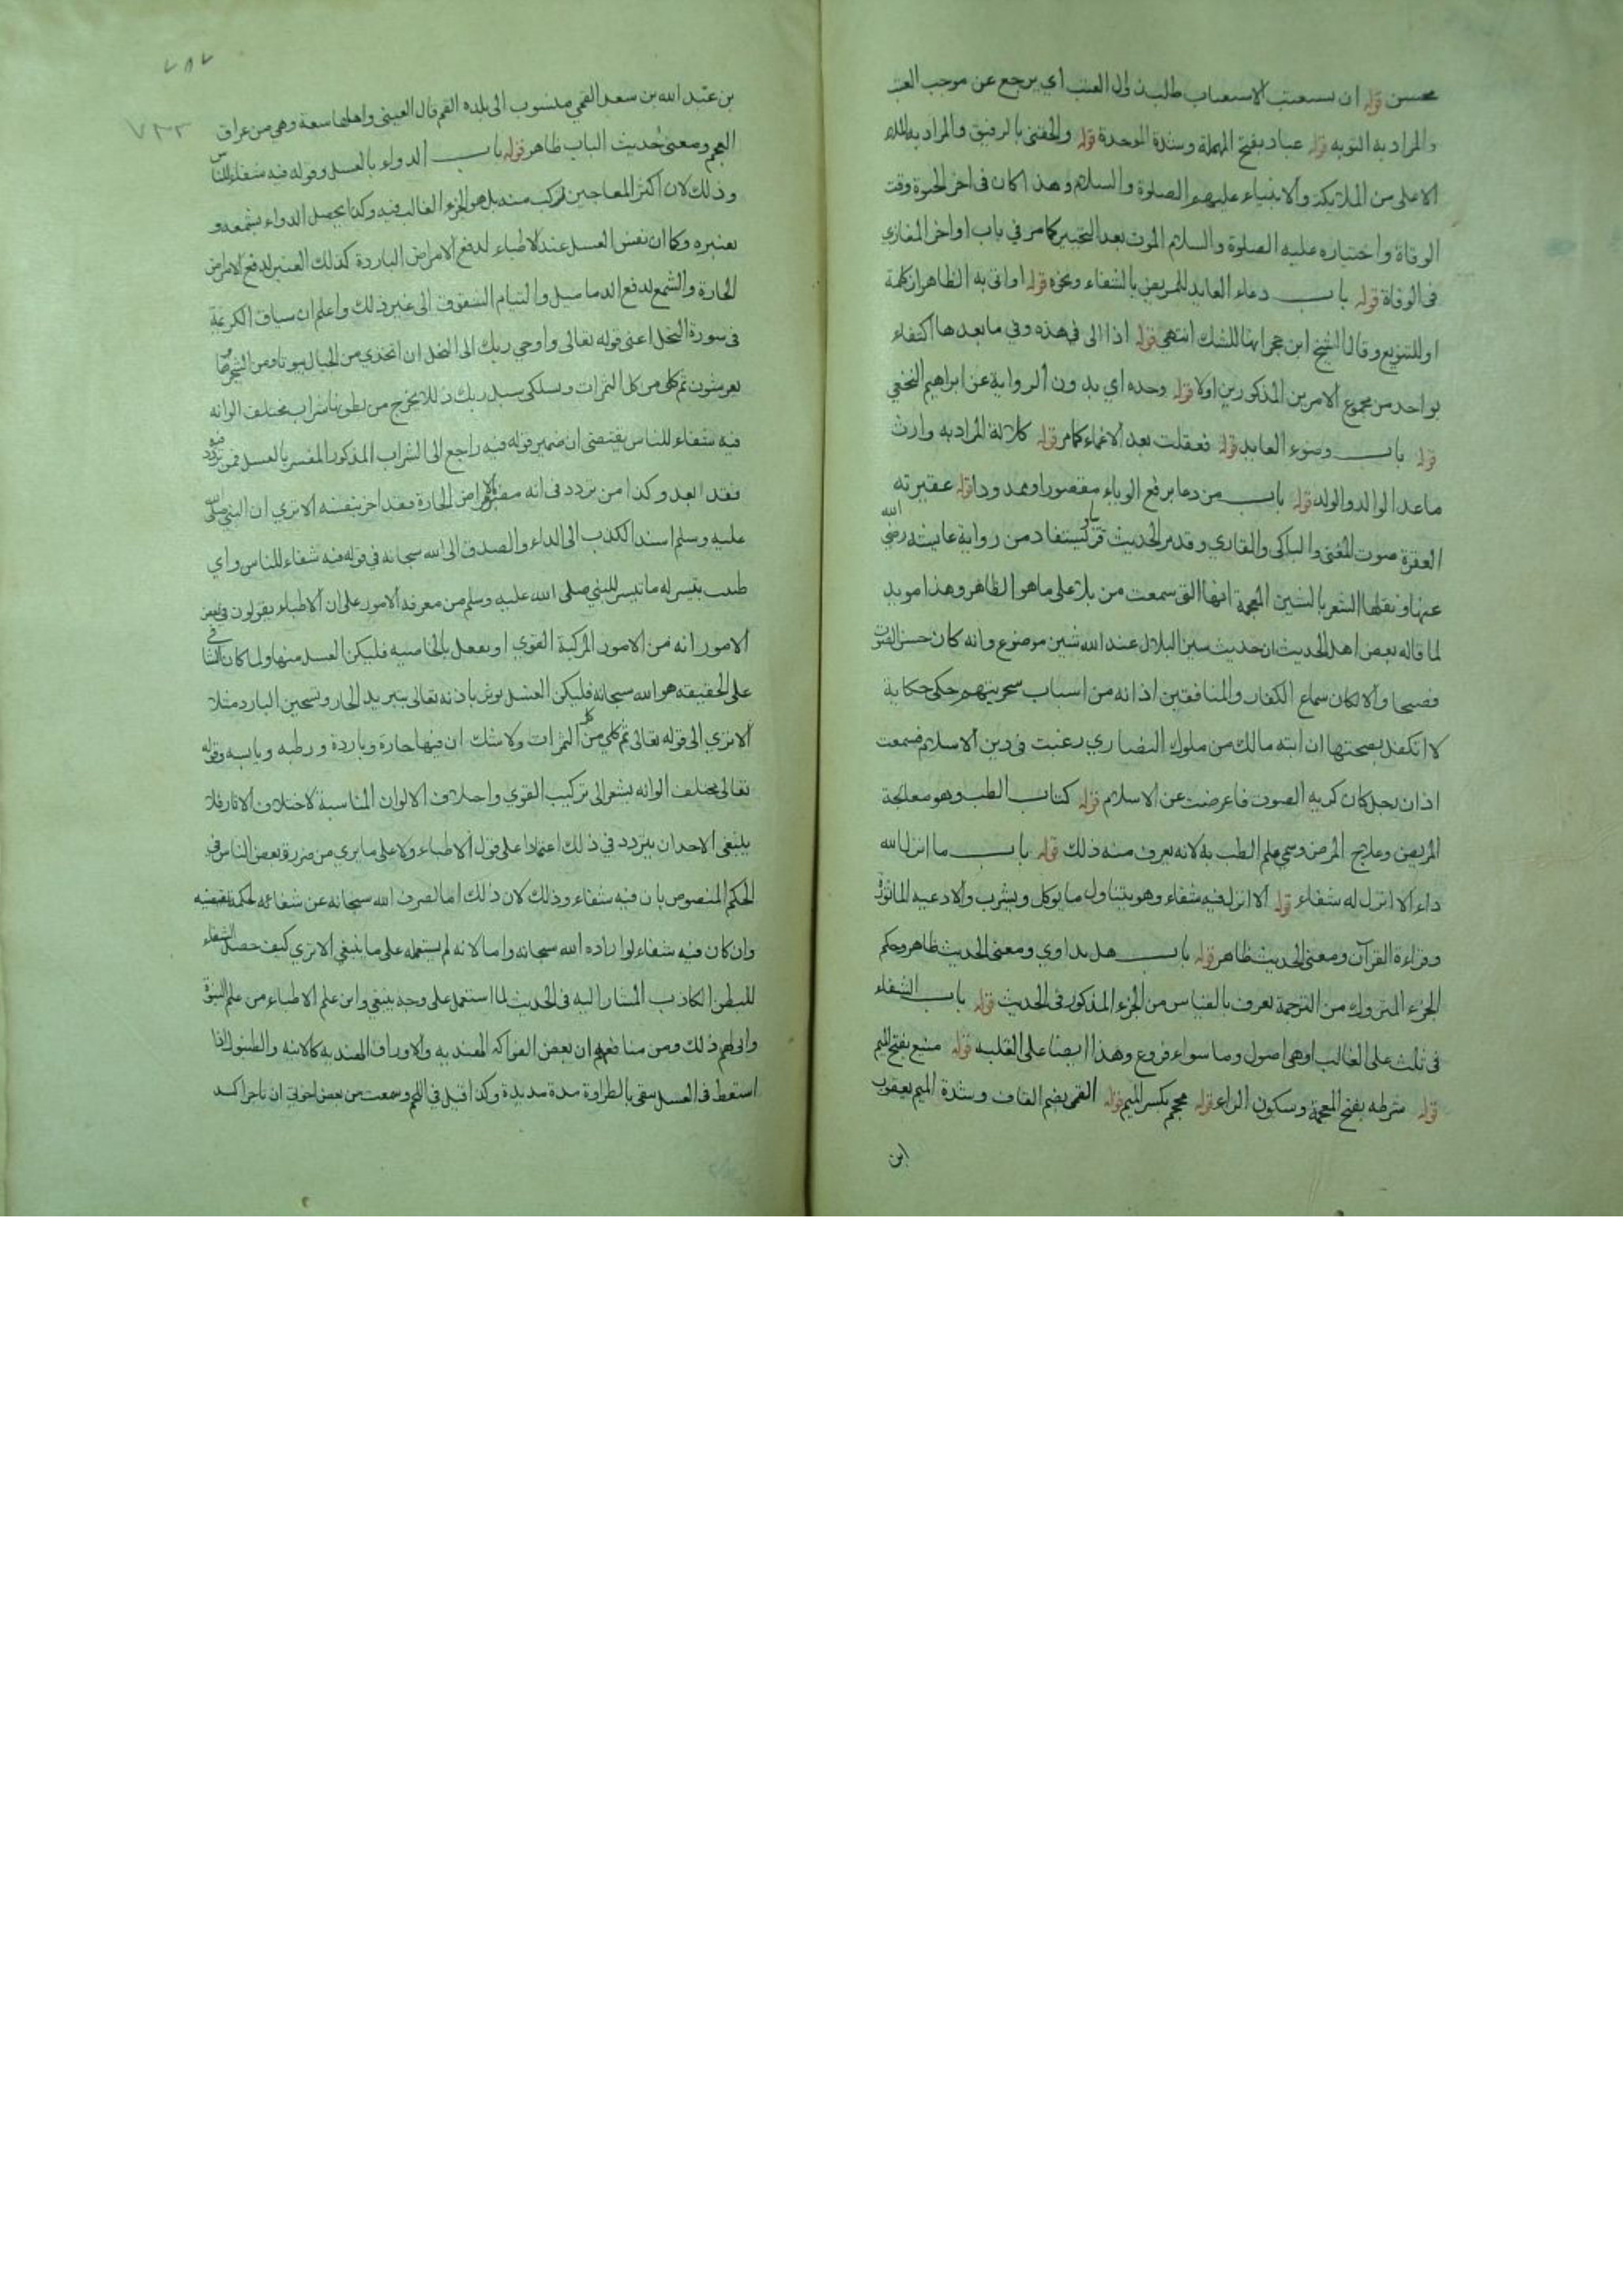 محسن قوله ان يستعتب الاستعتاب طلب زوال العتب اي يرجع عن موجب العتب
والمراد به التوبه قوله عباد بفتح المهملة وشدة الموحدة قوله والحقنى بالرفيق والمراد به الملاء
الاعلى من الملايكة والانبياء عليهم الصلوة والسلام وهذا كان في اخر الحيوة وقت
الوفاة واختياره عليه الصلوة والسلام الموت بعد التخيير كما مر في باب اواخر المغازي
في الوفاة قوله باب دعاء العايد للمريض بالشفاء ونحوه قوله او اتى به الظاهر ان كلمة
او للتنويع وقال الشيخ ابن حجر انها للشك انتهى قوله اذا اتى في هذه وفي ما بعدها اكتفاء
بواحد من مجموع الامرين المذكورين اولا قوله وحده اي بدون الرواية عن ابراهيم النخعي
قوله باب وضوء العايد قوله فعقلت بعد الاغماء كما مر قوله كلالة المراد به وارث
ما عدا الوالد والولد قوله باب من دعا برفع الوباء مقصورا وممدودا قوله عقيرته
العقرة صوت المغنى والباكى والقاري وقد مر الحديث قريبا ويستفاد من رواية عايشه رضي الله
عنها ونقلها الشعر بالشين المعجمة انها التي سمعت من بلال على ماهو الظاهر وهذا مويد
لما قاله بعض اهل الحديث ان حديث سين البلال عند الله شين موضوع وانه كان حسن الصوت
فصيحا والا لكان سماع الكفار والمنافقين اذانه من اسباب سخريتهم حكى حكاية
لا اتكفل بصحتها ان ابنه مالك من ملوك النصاري رغبت في دين الاسلام فسمعت
اذان رجل كان كريه الصوت فاعرضت عن الاسلام قوله كتاب الطب وهو معالجة
المريض وعلاج المرض وسمي علم الطب به لانه يعرف منه ذلك قوله باب ما انزل الله
داء الا انزل له شفاء قوله الا انزل فيه شفاء وهو يتناول ما يوكل ويشرب والادعيه الماثورة
وقراءة القرآن ومعنى الحديث ظاهر قوله باب هل يداوي ومعنى الحديث ظاهر وحكم
الجزء المتروك من الترجمة يعرف بالقياس من الجزء المذكور في الحديث قوله باب الشفاء
في ثلث على الغالب او هي اصول وما سواء فروع وهذا ايضا على القلبه قوله منيع بفتح الميم
قوله شرطه بفتح المعجمة وسكون الراء قوله محجم بكسر الميم قوله القمى بضم القاف وشدة الميم يعقوب
ابن
٧٨٧
٧٣٣
بن عبد الله بن سعد القمي منسوب الى بلده القم قال العينى واهلها سعة وهي من عراق
العجم ومعنى حديث الباب ظاهر قوله باب الدواء بالعسل وقوله فيه شفاء للناس
وذلك لان اكثر المعاجين تركب منه بل هو الجزء الغالب فيه وكذا يحصل الدواء بشمعه و
بعنبره وكما ان نفس العسل عند الاطباء لدفع الامراض الباردة كذلك العنبر لدفع الامراض
الحارة والشمع لدفع الدماميل والتيام الشقوق الى غير ذلك واعلم ان سياق الكريمة
في سورة النحل اعنى قوله تعالى واوحي ربك الى النحل ان اتخذي من الجبال بيوتا ومن الشجر ومما
يعرشون ثم كلى من كل الثمرات وسلكى سبل ربك ذللا يخرج من بطونها شراب مختلف الوانه
فيه شفاء للناس يقتضى ان ضمير قوله فيه راجع الى الشراب المذكور المفسر بالعسل فمن تردد فيه
فقد ابعد وكذا من تردد في انه مضر للامراض الحارة فقد اخر بنفسه الا تري ان النبي صلى الله
عليه وسلم اسند الكذب الى الداء والصدق الى الله سبحانه في قوله فيه شفاء للناس واي
طبيب يتيسر له ما تيسر للنبي صلى الله عليه وسلم من معرفة الامور على ان الاطباء يقولون في بعض
الامور انه من الامور المركبة القوي او يفعل بالخاصيه فليكن العسل منها ولما كان الشافي
على الحقيقه هو الله سبحانه فليكن العسل يوثر باذنه تعالى بتبريد الحار وتسخين البارد مثلا
الا تري الى قوله تعالى ثم كلي من كل الثمرات ولا شك ان فيها حارة وباردة ورطبه ويابسه وقوله
تعالى مختلف الوانه يشعر الى تركيب القوي واختلاف الالوان المناسبة لاختلاف الاثار فلا
ينبغى لاحد ان يتردد في ذلك اعتمادا على قول الاطباء ولا على ما يري من ضرره بعض الناس في
الحكم المنصوص بان فيه شفاء وذلك لان ذلك اما لصرف الله سبحانه عن شفائه لحكمة تقتضيه
وان كان فيه شفاء لو اراده الله سبحانه واما لانه لم يستعمله على ما ينبغي الا تري كيف حصل الشفاء
للبطن الكاذب المشار اليه في الحديث لما استعمل على وجه ينبغي واين علم الاطباء من علم النبوة
وانى لهم ذلك ومن منافعه ان بعض الفواكه الهنديه والاوراق الهنديه كالانبه والطنبول اذا
اسقط في العسل يبقى بالطراوة مدة مديدة وكذا قيل في اللحم وسمعت من بعض اخوتي ان تاجرا كسد